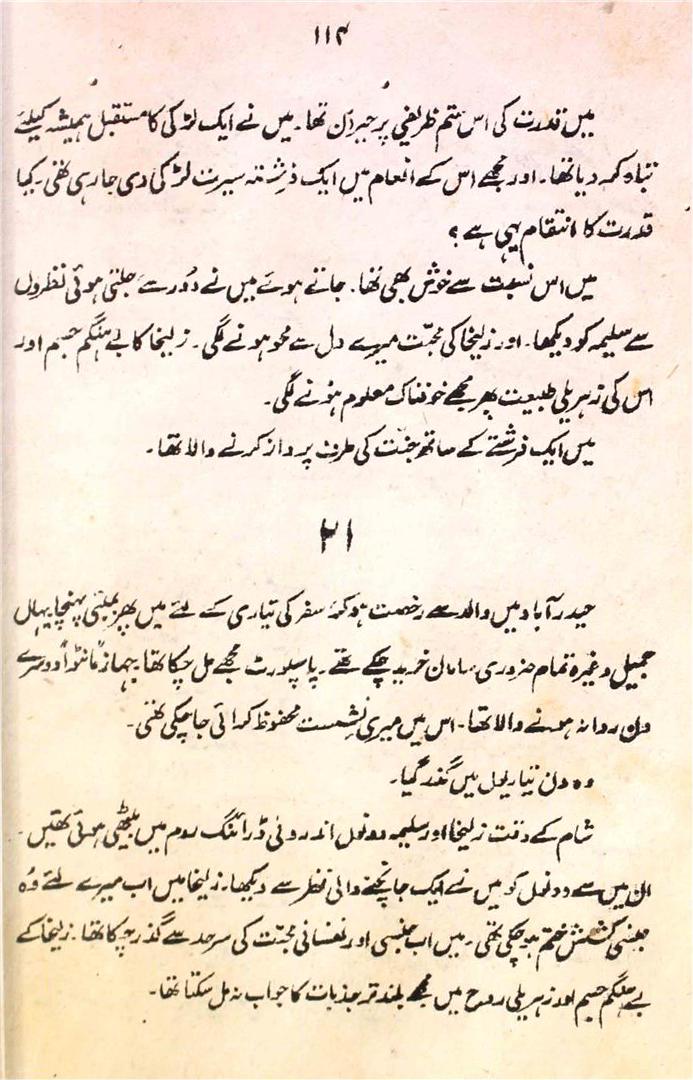 ۱۱۴
میں قدرت کی اس ستم ظریفی پر حیران تھا۔ میں نے ایک لڑکی کا مستقبل ہمیشہ کیلئے
تباہ کر دیا تھا۔ اور مجھے اس کے انعام میں ایک فرشتہ سیرت لڑکی دی جا رہی تھی۔ کیا
قدرت کا انتقام یہی ہے؟
میں اس نسبت سے خوش بھی تھا۔ جاتے ہوئے میں نے دُور سے جلتی ہوئی نظروں
سے سلیمہ کو دیکھا۔ اور زلیخا کی محبّت میرے دل سے محو ہونے لگی۔ زلیخا کا بے ہنگم جسم اور
اس کی زہریلی طبیعت پھر مجھے خوفناک معلوم ہونے لگی۔
میں ایک فرشتے کے ساتھ جنّت کی طرف پرواز کرنے والا تھا۔
۲۱
حیدرآباد میں والد سے رخصت ہو کر سفر کی تیاری کے لئے میں پھر بمبئی پہنچا یہاں
جمیل وغیرہ تمام ضروری سامان خرید چکے تھے۔ پاسپورٹ مجھے مل چکا تھا۔ جہاز مانٹوا دوسرے
دن روانہ ہونے والا تھا۔ اس میں میری نشست محفوظ کرائی جا چکی تھی۔
وہ دن تیاریوں میں گذر گیا۔
شام کے وقت زلیخا اور سلیمہ دونوں اندرونی ڈرائنگ روم میں بیٹھی ہوئی تھیں۔
ان میں سے دونوں کو میں نے ایک جانچنے والی نظر سے دیکھا۔ زلیخا میں اب میرے لئے وُہ
جنسی کشش ختم ہو چکی تھی۔ میں اب جنسی اور نفسانی محبّت کی سرحد سے گذر چکا تھا۔ زلیخا کے
بے ہنگم جسم اور زہریلی روح میں مجھے بلند تر جذبات کا جواب نہ مل سکتا تھا۔